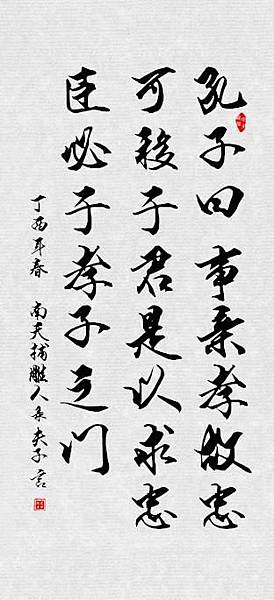 孔子曰事亲孝故忠
可移于君是以求忠
臣必于孝子之门
丁酉年春 南天捕雕人录夫子言